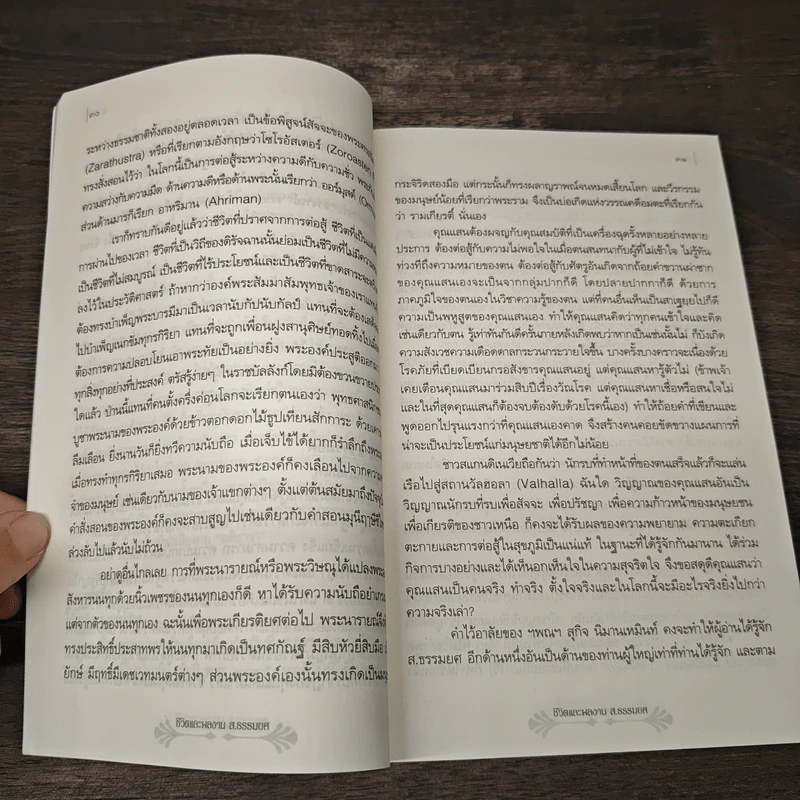 ๓๐
ระหว่างธรรมชาติทั้งสองอยู่ตลอดเวลา เป็นข้อพิสูจน์สัจจะของพระศาสดา
(Zarathustra) หรือที่เรียกตามอังกฤษว่าโซโรอัสเตอร์ (Zoroaster)
ทรงสั่งสอนไว้ว่า ในโลกนี้เป็นการต่อสู้ระหว่างความดีกับความชั่ว
ความสว่างกับความมืด ด้านความดีหรือด้านพระนั้นเรียกว่า ออร์มุสด์
ส่วนด้านมารก็เรียก อาหริมาน (Ahriman)
เราก็ทราบกันดีอยู่แล้วว่าชีวิตที่ปราศจากการต่อสู้ ชีวิตที่เป็นแต่
การผ่านไปของเวลา ชีวิตที่เป็นวิถีของดิรัจฉานนั้นย่อมเป็นชีวิตที่ไม่มี
เป็นชีวิตที่ไม่สมบูรณ์ เป็นชีวิตที่ไร้ประโยชน์และเป็นชีวิตที่ขาดสาระ
ลงไว้ในประวัติศาสตร์ ถ้าหากว่าองค์พระสัมมาสัมพุทธเจ้าของเรา
ต้องทรงบำเพ็ญพระบารมีมาเป็นเวลานับกัปนับกัลป์ แทนที่จะต้อง
ไปบำเพ็ญเนกขัมทุกรกิริยา แทนที่จะถูกเพื่อนฝูงสานุศิษย์ทอดทิ้ง
ต้องการความปลอบโยนเอาพระทัยเป็นอย่างยิ่ง พระองค์ประสูติออก
ทุกสิ่งทุกอย่างที่ประสงค์ ตรัสรู้ง่ายๆ ในราชบัลลังก์โดยมิต้องขวนขวาย
ใดแล้ว ป่านนี้แทนที่คนตั้งครึ่งค่อนโลกจะเรียกตนเองว่า พุทธศาสนิก
บูชาพระนามของพระองค์ด้วยข้าวตอกดอกไม้ธูปเทียนสักการะ
ลืมเลือน ยิ่งนานวันก็ยิ่งทวีความนับถือ เมื่อเจ็บไข้ได้ยากก็รำลึกถึง
เมื่อทรงทำทุกรกิริยาเสมอ พระนามของพระองค์ก็คงเลือนไปจากความ
จำของมนุษย์ เช่นเดียวกับนามของเจ้าแขกต่างๆ ตั้งแต่ต้นสมัยมาถึง
คำสั่งสอนของพระองค์ก็คงจะสาบสูญไปเช่นเดียวกับคำสอนมุนีฤาษี
ล่วงลับไปแล้วนับไม่ถ้วน
อย่าดูอื่นไกลเลย การที่พระนารายณ์หรือพระวิษณุได้แปลง
สังหารนนทุกด้วยนิ้วเพชรของนนทุกเองก็ดี หาได้รับความนับถือ
แต่จากตัวของนนทุกเอง ฉะนั้นเพื่อพระเกียรติยศต่อไป พระนารายณ์จึง
ทรงประสิทธิ์ประสาทพรให้นนทุกมาเกิดเป็นทศกัณฐ์ มีสิบหัวยี่สิบมือ
ยักษ์ มีฤทธิ์มีเดชเวทมนตร์ต่างๆ ส่วนพระองค์เองนั้นทรงเกิดเป็น
ชีวิตและผลงาน ส.ธรรมยศ
๓๑
กระจิริดสองมือ แต่กระนั้นก็ทรงผลาญราพณ์จนหมดเสี้ยนโลก และวีรกรรม
ของมนุษย์น้อยที่เรียกว่าพระราม จึงเป็นบ่อเกิดแห่งวรรณคดีอมตะที่เรียกกัน
ว่า รามเกียรติ์ นั่นเอง
คุณแสนต้องผจญกับคุณสมบัติที่เป็นเครื่องฉุดรั้งหลายอย่างหลาย
ประการ ต้องต่อสู้กับความไม่พอใจในเมื่อตนสนทนากับผู้ที่ไม่เข้าใจ ไม่รู้ทัน
ท่วงทีถึงความหมายของตน ต้องต่อสู้กับศัตรูอันเกิดจากถ้อยคำขวานผ่าซาก
ของคุณแสนเองจะเป็นจากกลุ่มปากก็ดี โดยปลายปากกาก็ดี ด้วยการ
ภาคภูมิใจของตนเองในวิชาความรู้ของตน แต่ที่คนอื่นเห็นเป็นสาเฐยยุยไปก็ดี
ความเป็นพหูสูตของคุณแสนเอง ทำให้คุณแสนคิดว่าทุกคนเข้าใจและคิด
เช่นเดียวกับตน รู้เท่าทันกันดีครั้นภายหลังเกิดพบว่าหากเป็นเช่นนั้นไม่ ก็บังเกิด
ความสังเวชความเดือดดาลกระวนกระวายใจขึ้น บางครั้งบางคราวจะเนื่องด้วย
โรคภัยที่เบียดเบียนกรอสังขารคุณแสนอยู่ แต่คุณแสนหารู้ตัวไม่ (ข้าพเจ้า
เคยเตือนคุณแสนมาร่วมสิบปีเรื่องวัณโรค แต่คุณแสนหาเชื่อหรือสนใจไม่
และในที่สุดคุณแสนก็ต้องจบต้องดับด้วยโรคนี้เอง) ทำให้ถ้อยคำที่เขียนและ
พูดออกไปรุนแรงกว่าที่คุณแสนเองคาด จึงสร้างคนคอยขัดขวางแผนการที่
น่าจะเป็นประโยชน์แก่มนุษยชาติได้อีกไม่น้อย
ชาวสแกนดิเนเวียถือกันว่า นักรบที่ทำหน้าที่ของตนเสร็จแล้วก็จะแล่น
เรือไปสู่สถานวัลฮอลา (Valhalla) ฉันใด วิญญาณของคุณแสนอันเป็น
วิญญาณนักรบที่รบเพื่อสัจจะ เพื่อปรัชญา เพื่อความก้าวหน้าของมนุษยชน
เพื่อเกียรติของชาวเหนือ ก็คงจะได้รับผลของความพยายาม ความตะเกียก
ตะกายและการต่อสู้ในสุขภูมิเป็นแน่แท้ ในฐานะที่ได้รู้จักกันมานาน ได้ร่วม
กิจการบางอย่างและได้เห็นอกเห็นใจในความสุจริตใจ จึงขอสดุดีคุณแสนว่า
คุณแสนเป็นคนจริง ทำจริง ตั้งใจจริงและในโลกนี้จะมีอะไรจริงยิ่งไปกว่า
ความจริงเล่า?
คำไว้อาลัยของ ฯพณฯ สุกิจ นิมมานเหมินท์ คงจะทำให้ผู้อ่านได้รู้จัก
ส.ธรรมยศ อีกด้านหนึ่งอันเป็นด้านของท่านผู้ใหญ่เท่าที่ท่านได้รู้จัก และตาม
ชีวิตและผลงาน ส.ธรรมยศ